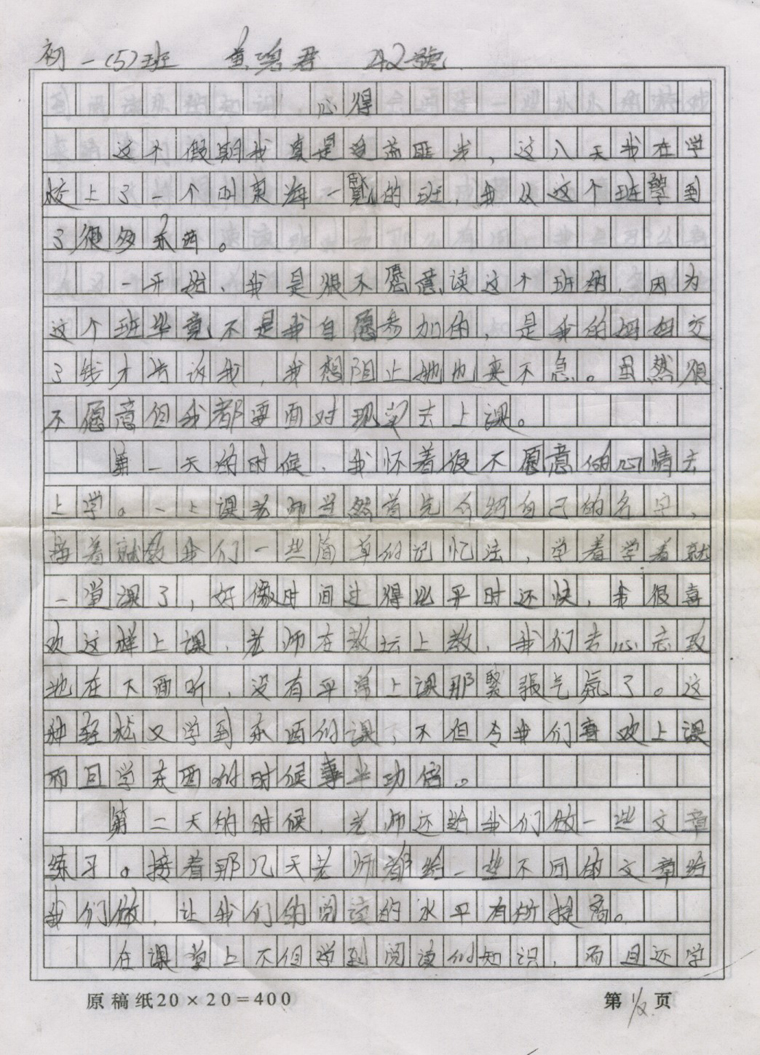 初一(5)班 42號
心得
这个假期我真是受益匪浅，这八天我在学
校上了一个叫東海一覽的班，我从这个班擧到
了很多东西。
一开始，我是很不愿意读这个班的，因为
这个班毕竟不是我自愿参加的，是我的妈妈交
了钱才告诉我，我想阻止她也来不急。虽然很
不愿意但我都要面对现实去上课。
第一天的时候，我怀着很不愿意的心情去
上学。一上课老师当然首先介绍自己的名字，
接着就教我们一些简单的记忆法，学着学着就
一堂课了，好像时间过得比平时还快，我很喜
欢这样上课，老师在教坛上教，我们去心志致
地在下面听，没有平常上课那緊張气氛了。这
种轻松又学到东西的课，不但令我们喜欢上课
而且学东西的时候事半功倍。
第二天的时候，老师还给我们做一些文章
练习。接着那几天老师都给一些不同的文章给
我们做，让我们的阅读的水平有所提高。
在课堂上不但学到阅读的知识，而且还学
原稿纸20×20=400
第1/2页